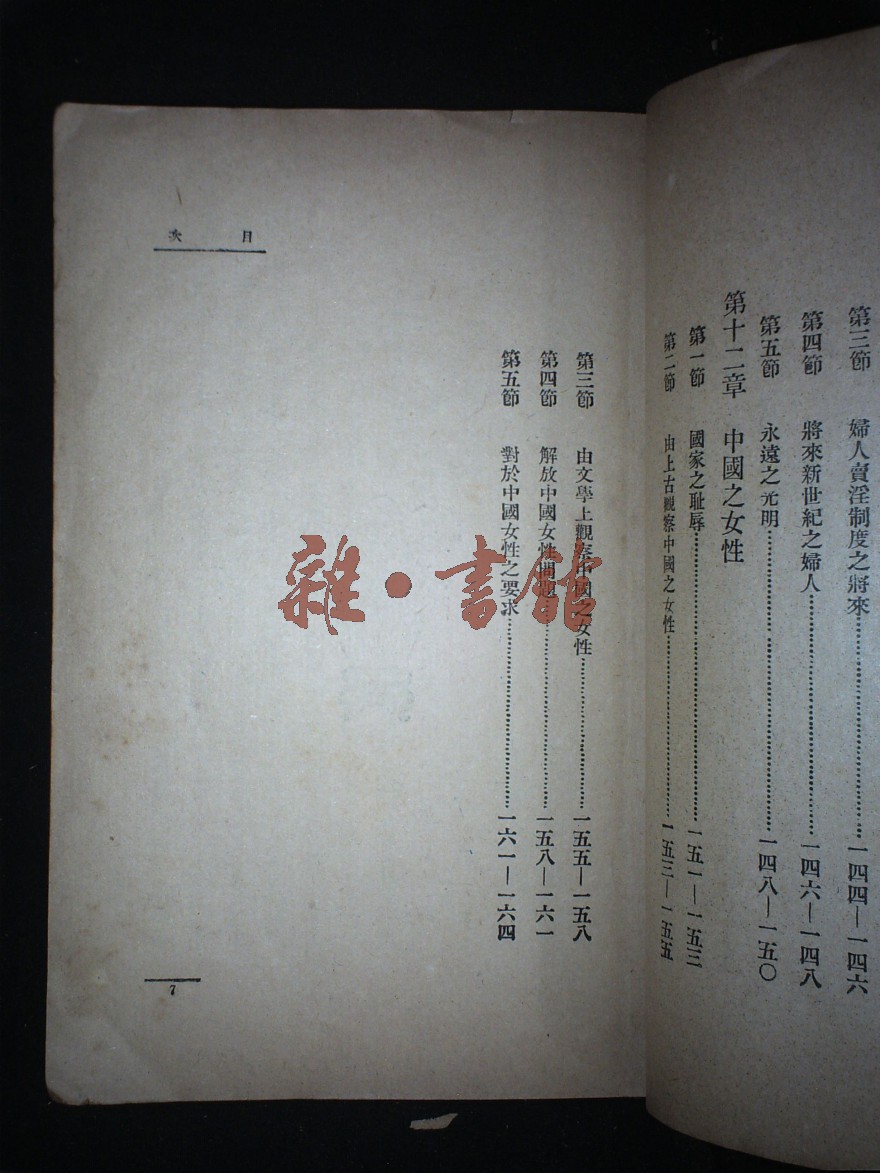 第三節 婦人賣淫制度之將來……一四四—一四六
第四節 將來新世紀之婦人……一四六—一四八
第五節 永遠之光明……一四八—一五〇
第十二章 中國之女性
第一節 國家之耻辱……一五一—一五三
第二節 由上古觀察中國之女性……一五三—一五五
第三節 由文學上觀察中國之女性……一五五—一五八
第四節 解放中國女性問題……一五八—一六一
第五節 對於中國女性之要求……一六一—一六四
目次
7
雜·書館